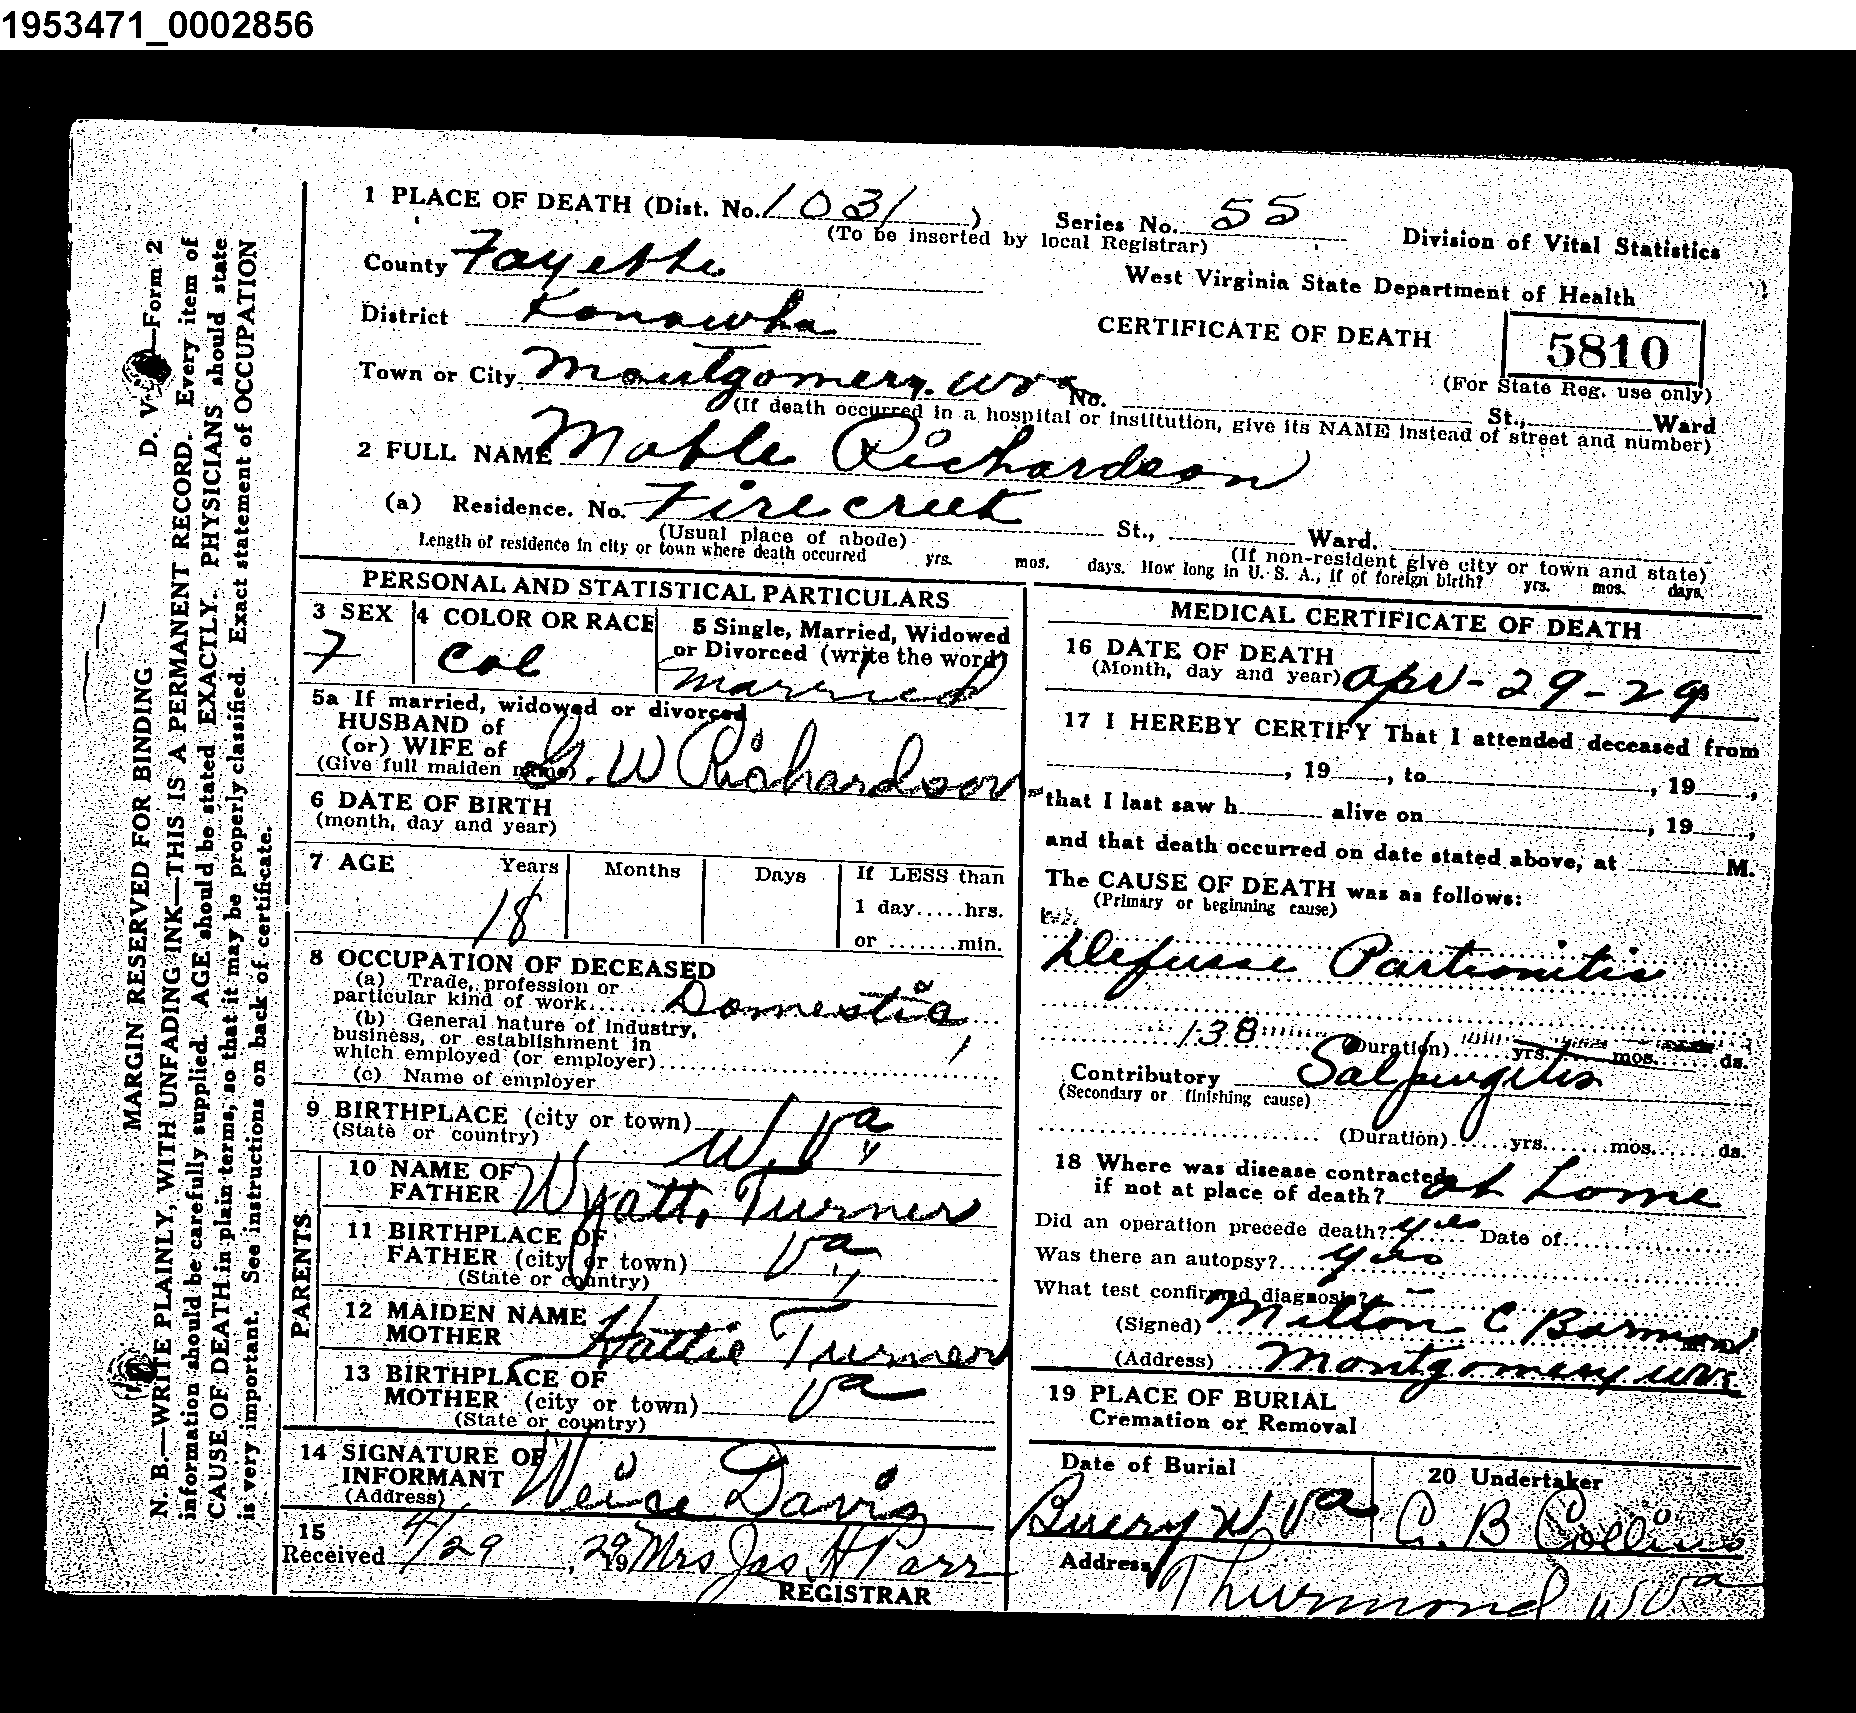 1953471_0002856
1 PLACE OF DEATH (Dist. No. 1031 ) Series No. 55
(To be inserted by local Registrar)
Division of Vital Statistics
County Fayette
West Virginia State Department of Health
District Kanawha
CERTIFICATE OF DEATH
5810
(For State Reg. use only)
Town or City Montgomery. WVa No. St., Ward
(If death occurred in a hospital or institution, give its NAME instead of street and number)
2 FULL NAME Mable Richardson
(a) Residence. No. Firecreek St., Ward.
(Usual place of abode) (If non-resident give city or town and state)
Length of residence in city or town where death occurred yrs. mos. days. How long in U. S. A., if of foreign birth? yrs. mos. days.
PERSONAL AND STATISTICAL PARTICULARS
3 SEX
F
4 COLOR OR RACE
Col
5 Single, Married, Widowed
or Divorced (write the word)
Married
5a If married, widowed or divorced
HUSBAND of
(or) WIFE of
(Give full maiden name) G. W Richardson
6 DATE OF BIRTH
(month, day and year)
7 AGE Years Months Days If LESS than
1 day.....hrs.
or .......min.
18
8 OCCUPATION OF DECEASED
(a) Trade, profession or
particular kind of work..... Domestic
(b) General nature of industry,
business, or establishment in
which employed (or employer)
(c) Name of employer
9 BIRTHPLACE (city or town)
(State or country) W. Va
PARENTS
10 NAME OF
FATHER Wyatt Turner
11 BIRTHPLACE OF
FATHER (city or town) Va
(State or country)
12 MAIDEN NAME
MOTHER Hattie Turner
13 BIRTHPLACE OF
MOTHER (city or town) Va
(State or country)
14 SIGNATURE OF
INFORMANT
(Address) Davis
15
Received 4/29, 1929 Mrs Jas H Parr
REGISTRAR
MEDICAL CERTIFICATE OF DEATH
16 DATE OF DEATH
(Month, day and year) Apr - 29 - 29
17 I HEREBY CERTIFY That I attended deceased from
, 19 , to , 19 ,
that I last saw h alive on , 19 ,
and that death occurred on date stated above, at M.
The CAUSE OF DEATH was as follows:
(Primary or beginning cause)
Defusse Partionitis
138 (Duration) yrs. mos. ds.
Contributory Salpingitis
(Secondary or finishing cause)
(Duration) yrs. mos. ds.
18 Where was disease contracted
if not at place of death? at home
Did an operation precede death? yes Date of
Was there an autopsy? yes
What test confirmed diagnosis? -
(Signed) Milton C Barman
(Address) Montgomery WVa
19 PLACE OF BURIAL
Cremation or Removal
Date of Burial
Buery W Va
20 Undertaker
C. B Collins
Address Thurmond W Va
MARGIN RESERVED FOR BINDING D. V. —Form 2
N. B.—WRITE PLAINLY, WITH UNFADING INK—THIS IS A PERMANENT RECORD. Every item of
information should be carefully supplied. AGE should be stated EXACTLY. PHYSICIANS should state
CAUSE OF DEATH in plain terms, so that it may be properly classified. Exact statement of OCCUPATION
is very important. See instructions on back of certificate.